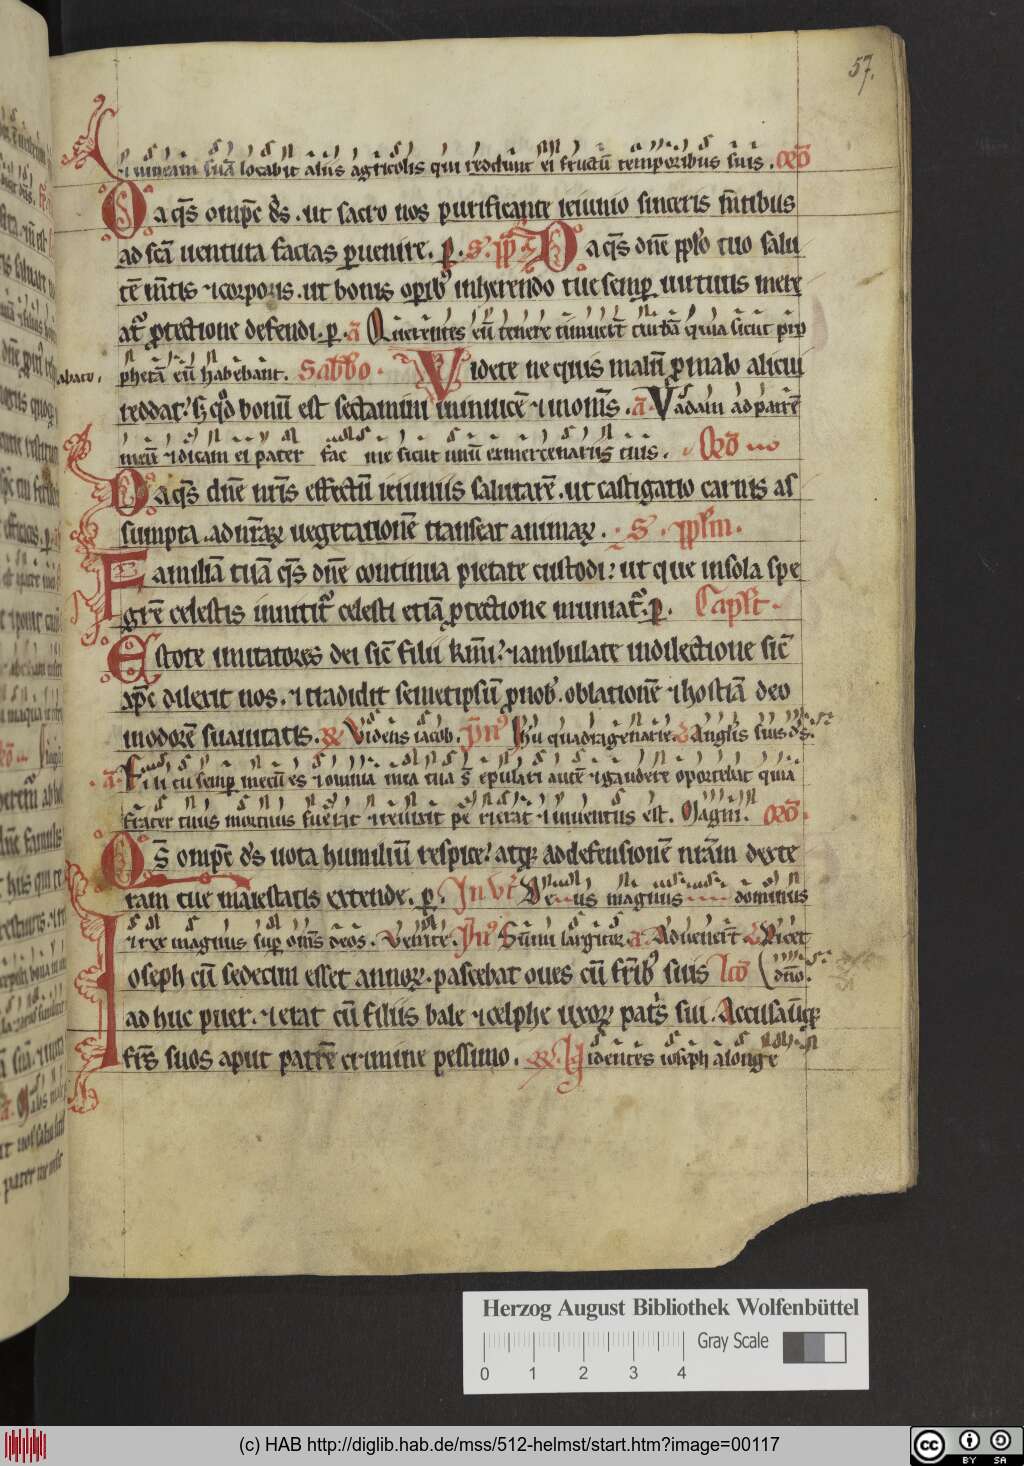 57.
et uineam suā locabit aliis agricolis qui reddunt ei fructū temporibus suis. Orō
Da q̄s omp̄c d̄s. ut sacro nos purificante ieiunio sinceris m̄tibus
ad sc̄a uentura facias ꝑuenire. ꝑ. S. ppl̄m Da q̄s dn̄e pplo tuo salu
tē m̄tis ⁊ corporis. ut bonis oꝑibꝰ inherendo tue semꝑ uirtutis mere
at̄ ꝓtectione defendi. ꝑ. a Querentes eū tenere timuer̄t turbā quia sicut prop
phetā eū habebant. Sabb̄o. Videte ne quis malū ꝓ malo alicui
reddat? s; qd̄ bonū est sectamini inuicē ⁊ in om̄s. a. Vadam ad patrē
meū ⁊ dicam ei pater fac me sicut unū ex mercenariis tuis. Orō
Da q̄s dn̄e nr̄is effectū ieiuniis salutarē. ut castigatio carnis as
sumpta. ad nr̄aꝝ uegetationē transeat animaꝝ. S. ppl̄m.
Familiā tuā q̄s dn̄e continua pietate custodi? ut que in sola spe
gr̄e celestis innitit̄ celesti etiā ꝓtectione muniat̄. ꝑ. Capl̄t.
Estote imitatores dei sic̄ filii km̄i? ⁊ ambulate in dilectione sic̄
xp̄c dilexit nos. ⁊ tradidit semetipsū ꝓ nob̄. oblationē ⁊ hostiā deo
in odorē suauitatis. R Videns iacob. ymꝰ Ihu quadragenarie. V Anglis suis d̄s.
a. Fili tu semꝑ mecū es ⁊ omnia mea tua s̄ epulari autē ⁊ gaudere oportebat quia
frater tuus mortuus fuerat ⁊ reuixit perierat ⁊ inuentus est. Magni. Orō.
Om̄ps̄ omp̄c d̄s uota humiliū respice? atqꝫ ad defensionē nr̄am dexte
ram tue maiestatis extende. ꝑ. In Vt Deus magnus dominus
⁊ rex magnus suꝑ om̄s deos. Venite. ymꝰ Sūmi largitor. a. Aduener̄t V Dicet
Ioseph cū sedecim esset annoꝝ. pascebat oues cū fr̄ibꝰ suis Lcō dn̄o.
ad huc puer. ⁊ erat cū filiis bale ⁊ celphe uxoꝝ patris sui. Accusauitqꝫ
fr̄s suos aput patrē crimine pessimo. R Videntes ioseph a longe
Herzog August Bibliothek Wolfenbüttel
Gray Scale
0 1 2 3 4
(c) HAB http://diglib.hab.de/mss/512-helmst/start.htm?image=00117
cc BY SA